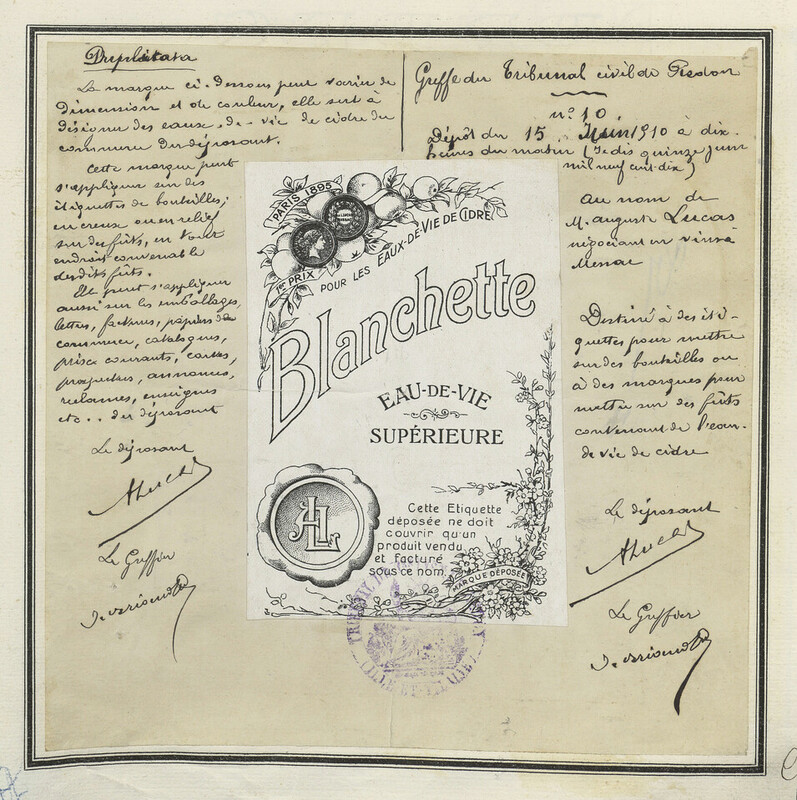 Duplicata
La marque ci-dessous peut varier de
dimension et de couleur, elle sert à
désigner des eaux-de-vie de cidre du
commerce du déposant.
Cette marque peut
s'appliquer sur des
étiquettes de bouteilles,
en creux ou en relief
sur des fûts, en tout
endroit convenable
desdits fûts.
Elle peut s'appliquer
aussi sur les emballages,
lettres, factures, papiers de
commerce, catalogues,
prix courants, cartes,
prospectus, annonces,
réclames, enseignes
etc.. du déposant
Le déposant
ALucas
Le Greffier
Greffe du Tribunal civil de Redon
n° 10
Dépôt du 15 Juin 1910 à dix
heures du matin (Je dis quinze juin
mil neuf cent dix)
Au nom de
M. Auguste Lucas
négociant en vins à
Messac
Destiné à des éti-
quettes pour mettre
sur des bouteilles ou
à des marques pour
mettre sur des fûts
contenant de l'eau-
de vie de cidre
Le déposant
ALucas
Le Greffier
PARIS 1895
1er PRIX
POUR LES EAUX-DE-VIE DE CIDRE
Blanchette
EAU-DE-VIE
SUPÉRIEURE
AL
Cette Etiquette
déposée ne doit
couvrir qu'un
produit vendu
et facturé
sous ce nom.
MARQUE DÉPOSÉE
ILLE-ET-VILAINE